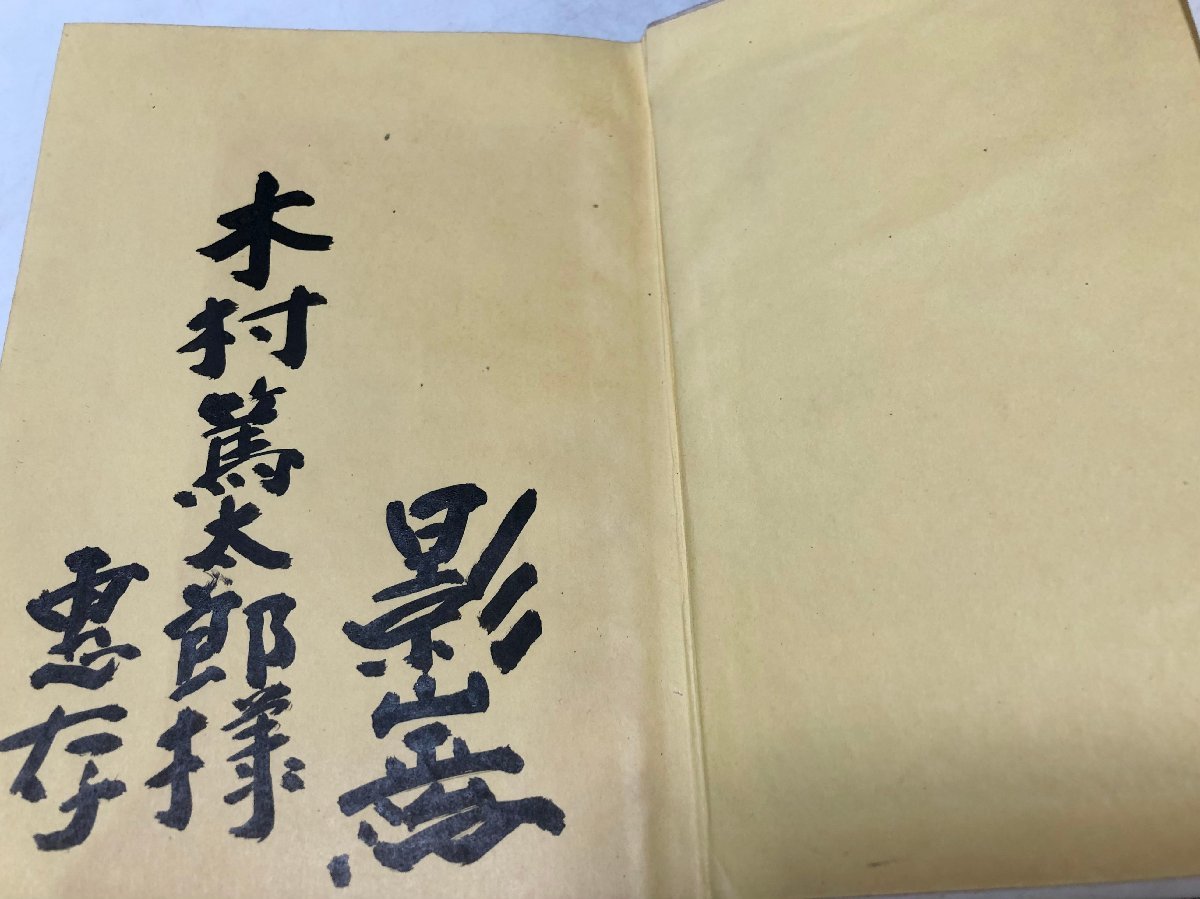 影山
木村篤太郎様
恵存